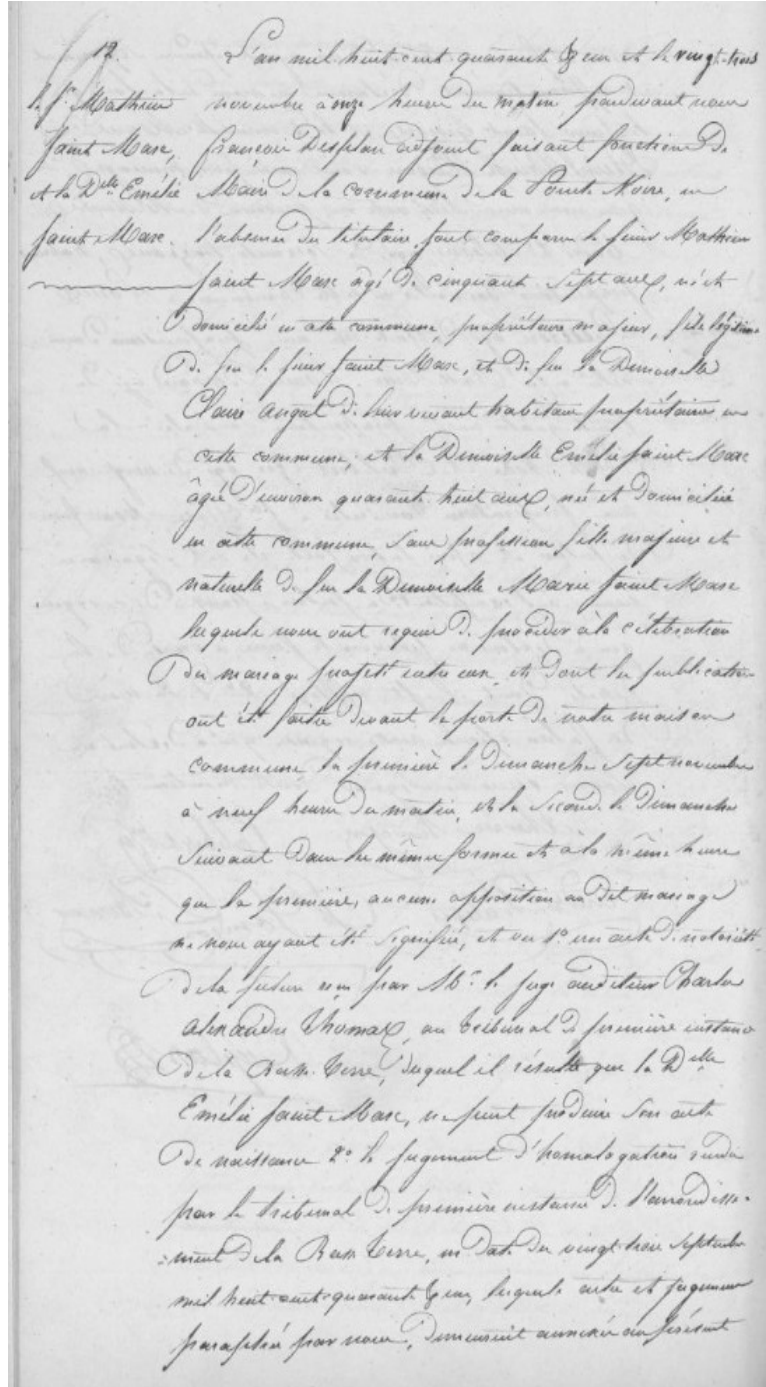 12.
le Sr. Mathieu
Saint Marc,
et la Dlle Emélie
Saint Marc.
L'an mil huit cent quarante deux et le vingt-trois
novembre à onze heures du matin pardevant nous
François Desplan adjoint faisant fonctions de
Maire de la commune de la Pointe Noire, en
l'absence du titulaire, sont comparus le sieur Mathieu
Saint Marc âgé de cinquante sept ans, né et
domicilié en cette commune, propriétaire majeur, fils légitime
de feu le sieur Saint Marc, et de feu la Demoiselle
Claire de leur vivant habitans propriétaires en
cette commune; et la Demoiselle Emélie Saint Marc
âgée d'environ quarante huit ans, née et domiciliée
en cette commune, sans profession fille majeure et
naturelle de feu la Demoiselle Marie Saint Marc
lesquels nous ont requis de procéder à la célébration
du mariage projeté entre eux, et dont les publications
ont été faites devant la porte de notre maison
commune, la première le Dimanche sept novembre
à neuf heures du matin, et la seconde le Dimanche
suivant dans les mêmes formes et à la même heure
que la première, aucune opposition au dit mariage
ne nous ayant été signifiée, et vu 1° un acte de notoriété
de la future reçu par Mr. le juge auditeur Charles
Alexandre Thomas, au tribunal de première instance
de la Basse-Terre, duquel il résulte que la Dlle
Emélie Saint Marc, ne peut produire son acte
de naissance 2° le jugement d'homologation rendu
par le tribunal de première instance de l'arrondisse-
:ment de la Basse Terre, en date du vingt-trois septembre
mil huit-cent-quarante deux, lesquels acte et jugement
paraphés par nous, demeurent annexés au présent